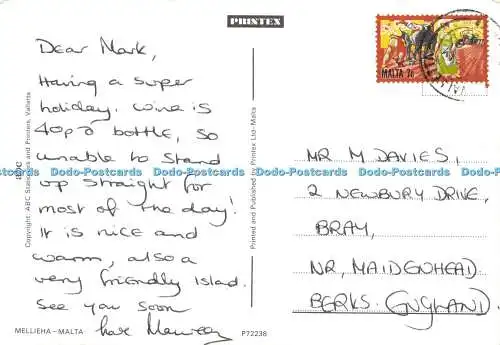 PRINTEX
Dear Mark,
Having a super
holiday. Wine is
40p a bottle, so
unable to stand
up straight for
most of the day!
It is nice and
warm, also a
very friendly Island.
See you soon
love Maureen
MELLIEHA - MALTA
P72238
Copyright: ABC Stationers and Printers, Valletta
Printed and Published by Printex Ltd - Malta
MALTA 7c
MR M DAVIES,
2 NEWBURY DRIVE,
BRAY,
NR, MAIDENHEAD
BERKS. (ENGLAND).
Dodo-Postcards Dodo-Postcards Dodo-Postcards Dodo-Postcards